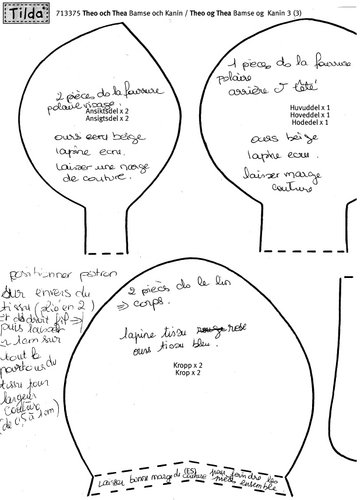 Tilda
713375 Theo och Thea Bamse och Kanin / Theo og Thea Bamse og Kanin 3 (3)
2 pièces de la fourrure
polaire visage
Ansiktsdel x 2
Ansigtsdel x 2
ours beige
lapine ecru.
laisser une marge
de couture.
1 pièces de la fourrure
polaire
arrière tête
Huvuddel x 1
Hoveddel x 1
Hodedel x 1
ours beige
lapine ecru.
laisser marge
couture
positionner patron
sur envers du
tissu (plié en 2)
Et droit fil ⇒
puis laisser
1 cm sur
tout le
pourtour du
tissu pour
largeur
couture
(de 0,5 à 1 cm)
2 pièces de le lin
⇒ corps.
lapine tissu rose
ours tissu bleu.
Kropp x 2
Krop x 2
Laisser bonne marge de couture (ES) pour joindre les
pièces ensemble